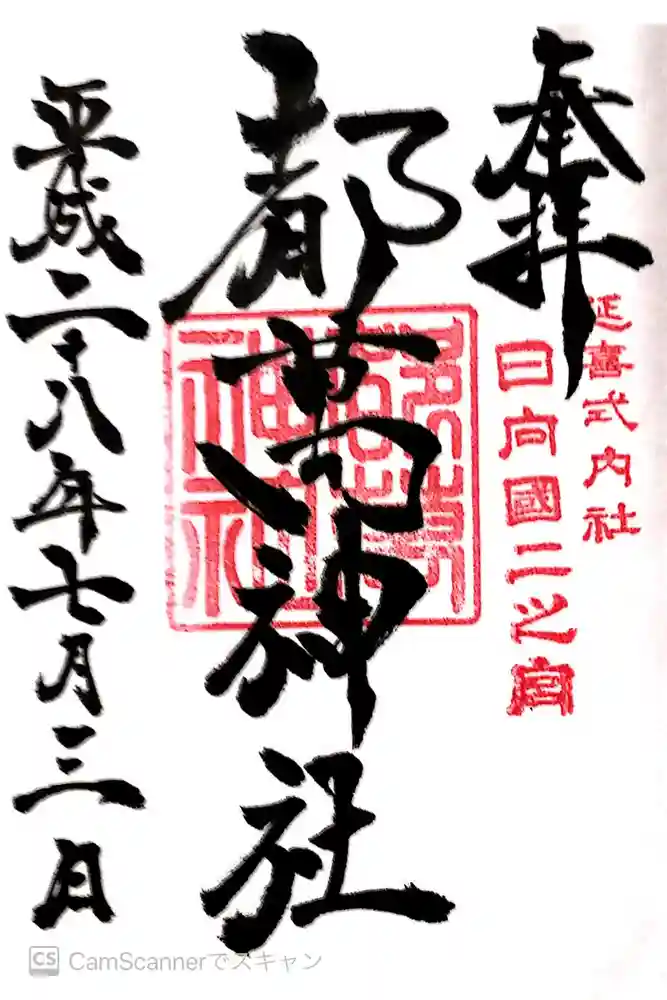 奉拝
延喜式内社
日向國二之宮
都萬神社
都萬神社
平成二十八年七月三日
CS CamScannerでスキャン